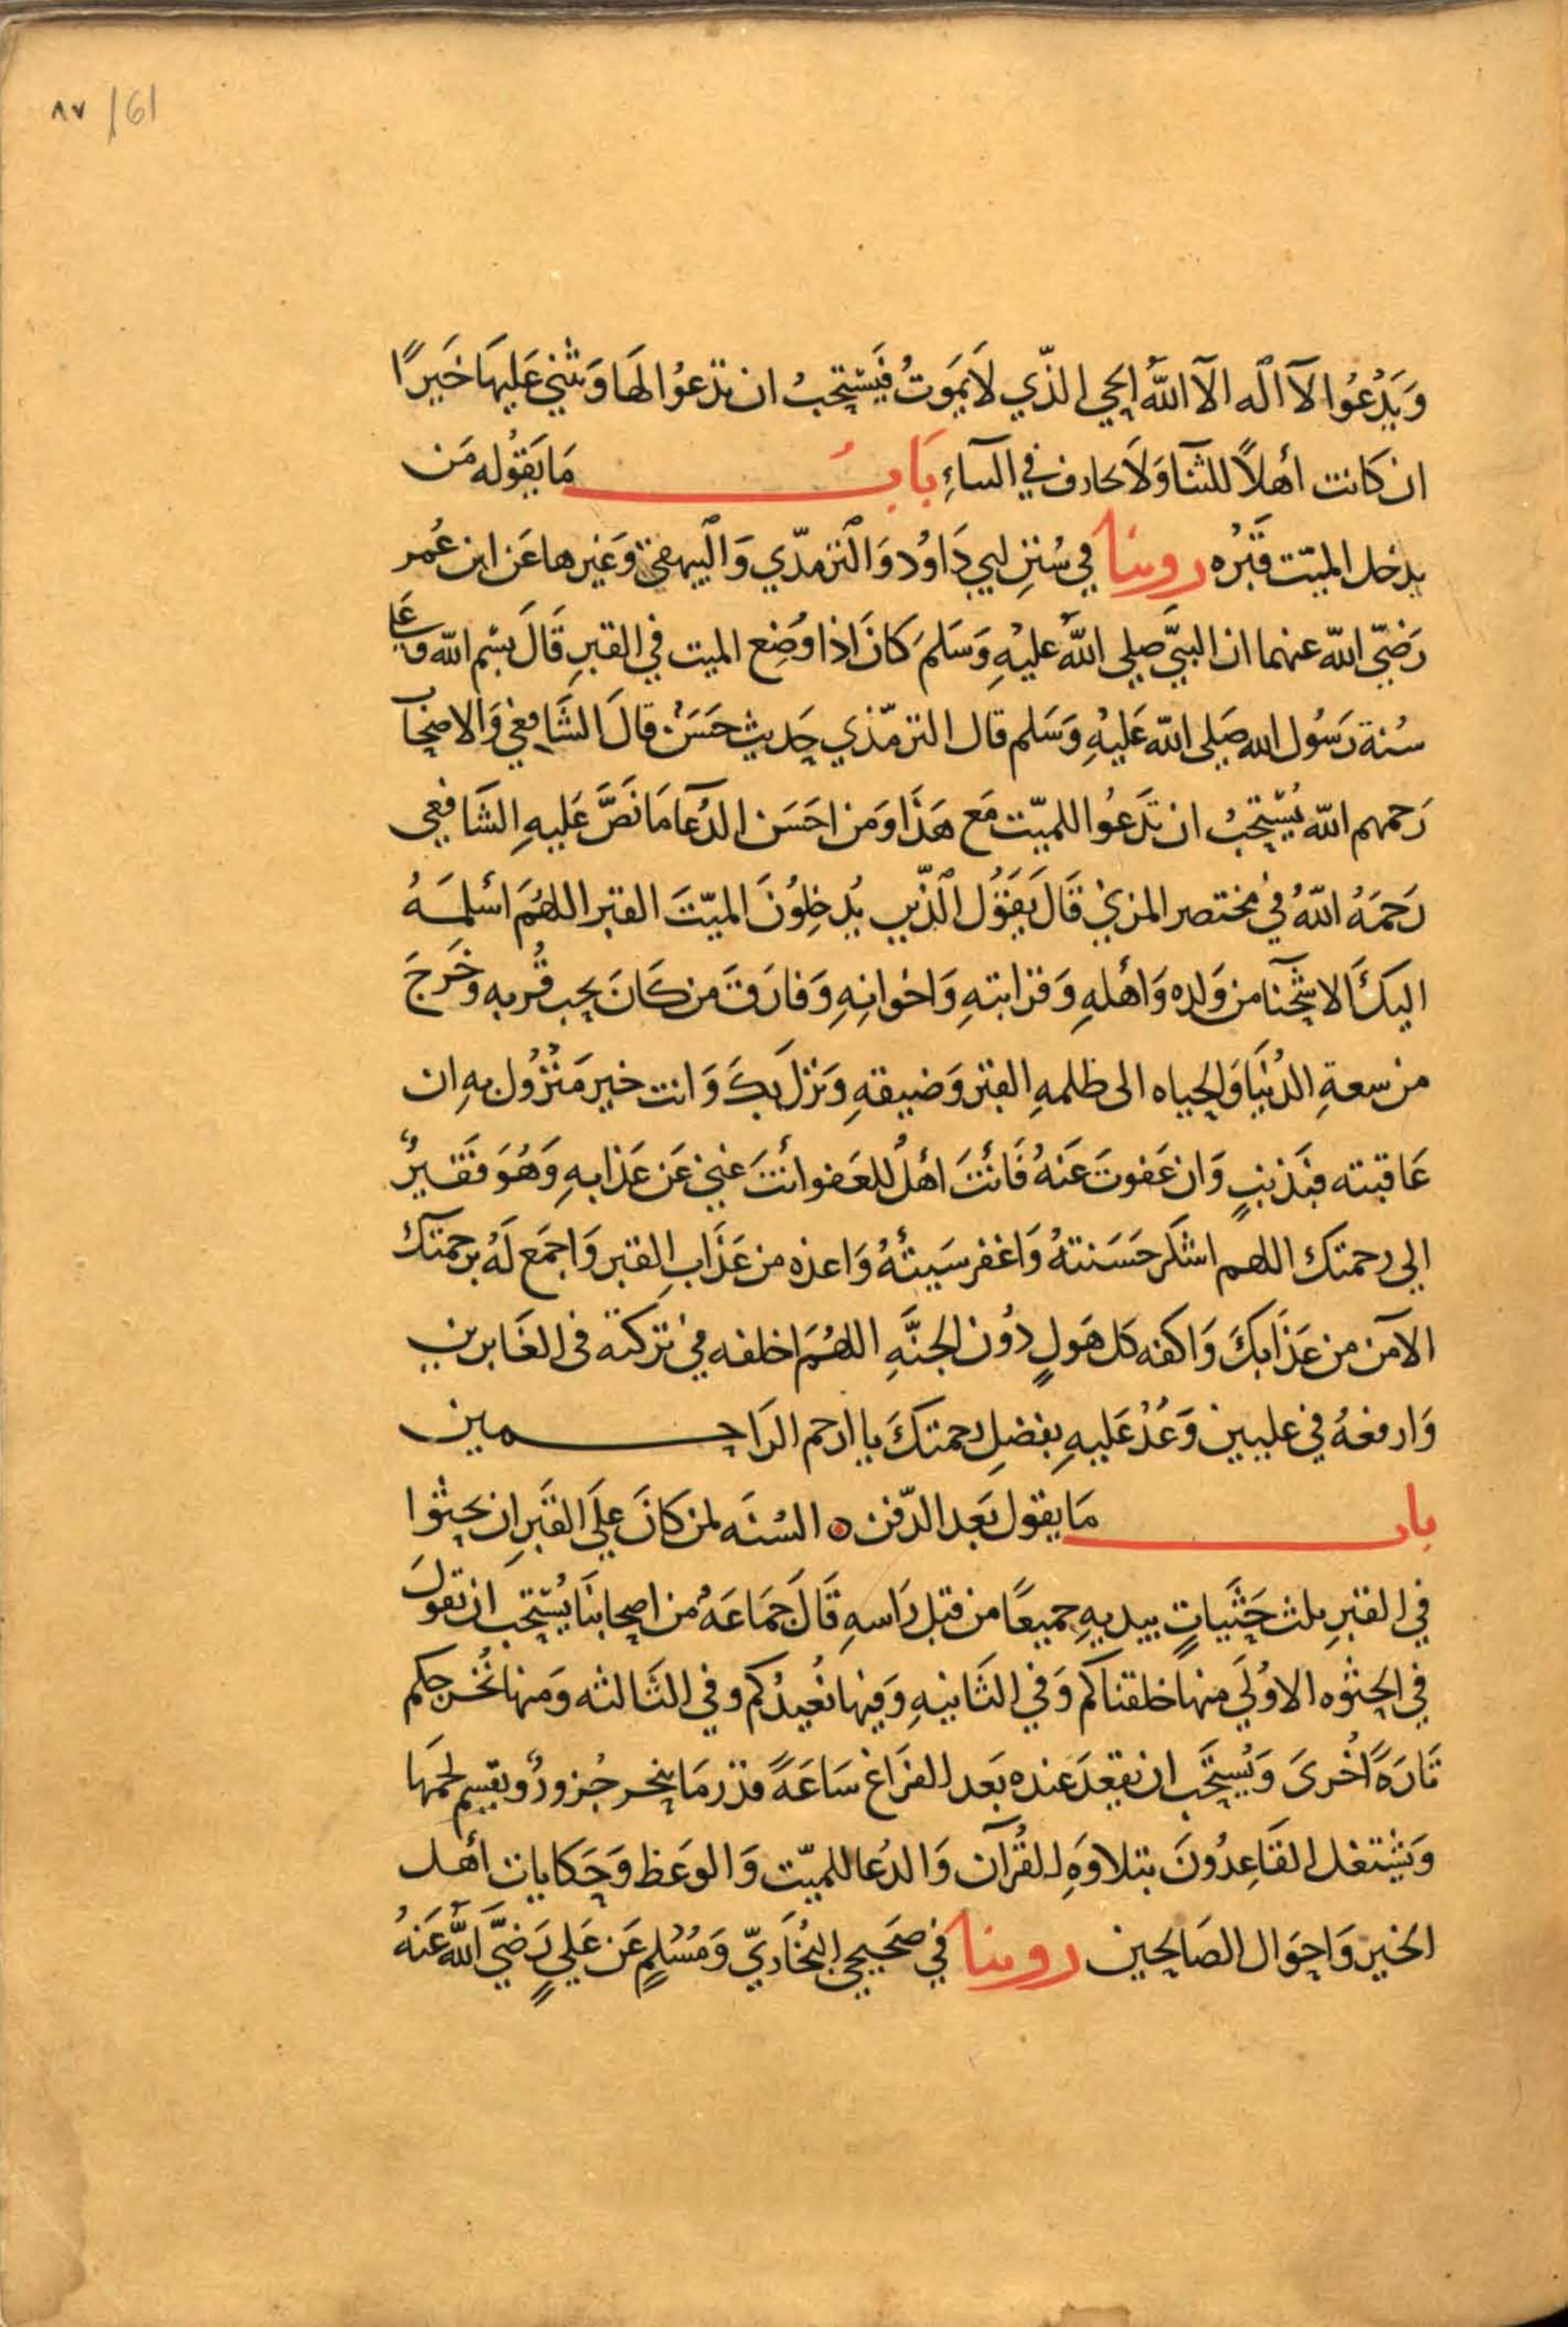 ٨٧ / 161
وَيَدْعُوا لآ اله الآ اللهُ الحي الذّي لاَ يَموَتُ فَيسْتحبُ ان تدْعوُا لهَا وَيثْني عَليهَا خَيرًا
ان كانت أهلاً للثنآ وَلاَ يحارف في الثناءِ بَابُ مَا يَقوُله مَن
يدخل الميّت قَبْرُه روينا في سُنن ابي دَاوُد وَالترمذّي وَالبيهقي وَغيرها عَن ابن عُمر
رَضيّ الله عنهما ان النبيَّ صلى اللهُ عليْهِ وَسَلمَ كانَ اذا وُضِع الميت في القبرِ قَالَ بسْم الله وعَلى
سُنة رَسُول الله صَلى الله عَليْهِ وَسَلم قال الترمّذي حديث حَسَنْ قالَ الشَافعي وَالاصْحاب
رَحمهم الله يُسْتحبُ ان تَدعُوا للميّت مَع هَذَا وَمَن احَسَن الدُعآ مَا نَصَّ عَليهِ الشَافعي
رَحمَهُ اللهُ في مختصر المزني قَالَ يَقوُل الذّين يُدخِلوُنَ الميّتَ القبر اللهُمَ اسْلمَــهُ
اليكَ الاشحّآ من وَلده وَأهلهِ وَقرابتهِ وَاخوانهِ وَفارَقَ مَن كانَ يحب قُربه وخَرجَ
من سعةِ الدُنيَا وَالحياه الى ظلمهِ القبر وَضيقهِ وَنزل بكَ وَانت خير مَنْزُول بهِ ان
عَاقبته فبذنبٍ وَان عَفوتَ عَنهُ فَأنتَ اهْلُ للعَفو أنتَ غني عَن عَذابهِ وَهُوَ فَقيرٌ
الى رحمتك اللهم اشكر حَسَنتهُ وَاغفر سَيئهُ وَاعذه من عَذَابِ القبر وَاجمَع لَهُ برحمتكَ
الآمن من عَذَابكَ وَاكفه كل هَولٍ دوُن الجنَّهِ اللهُمَ اخلفه في تركته فى الغَابرين
وَارفعهُ في عليين وَعُدْ عَليهِ بفضلِ رحمتكَ يا ارحم الرَاحـــمين
باب مَا يقول بَعد الدّفن ه السُنَه لمن كانَ علَى القَبرِ ان يحثوا
في القبرِ ثلث حَثَياتٍ بيديهِ جميعًا من قبل رَاسهِ قَالَ جمَاعَهُ من اصحابنَا يُسْتحبَ ان تقولَ
في الحثوه الاوُلَي منها خلقناكم وَفي الثَانيهِ وَفيها نُعيدُكم وفي الثَالثه وَمنها نُخرجكم
تَارَةً اُخرىَ وَيُستحَب ان يقعدَ عنده بَعد الفرَاغ سَاعَةً قدْر مَا ينحر جُزورٌ ويقسِم لحمهَا
وَيَشْتغل القَاعِدُونَ بتلاوَهِ القُرآن وَالدُعا للميّت وَالوعَظ وَحَكايات أهل
الخير وَاحوَال الصَالحين روينا في صَحيحي البُخَاريّ وَمُسْلِم عَن عَليٍ رَضيَّ اللهُ عَنهُ